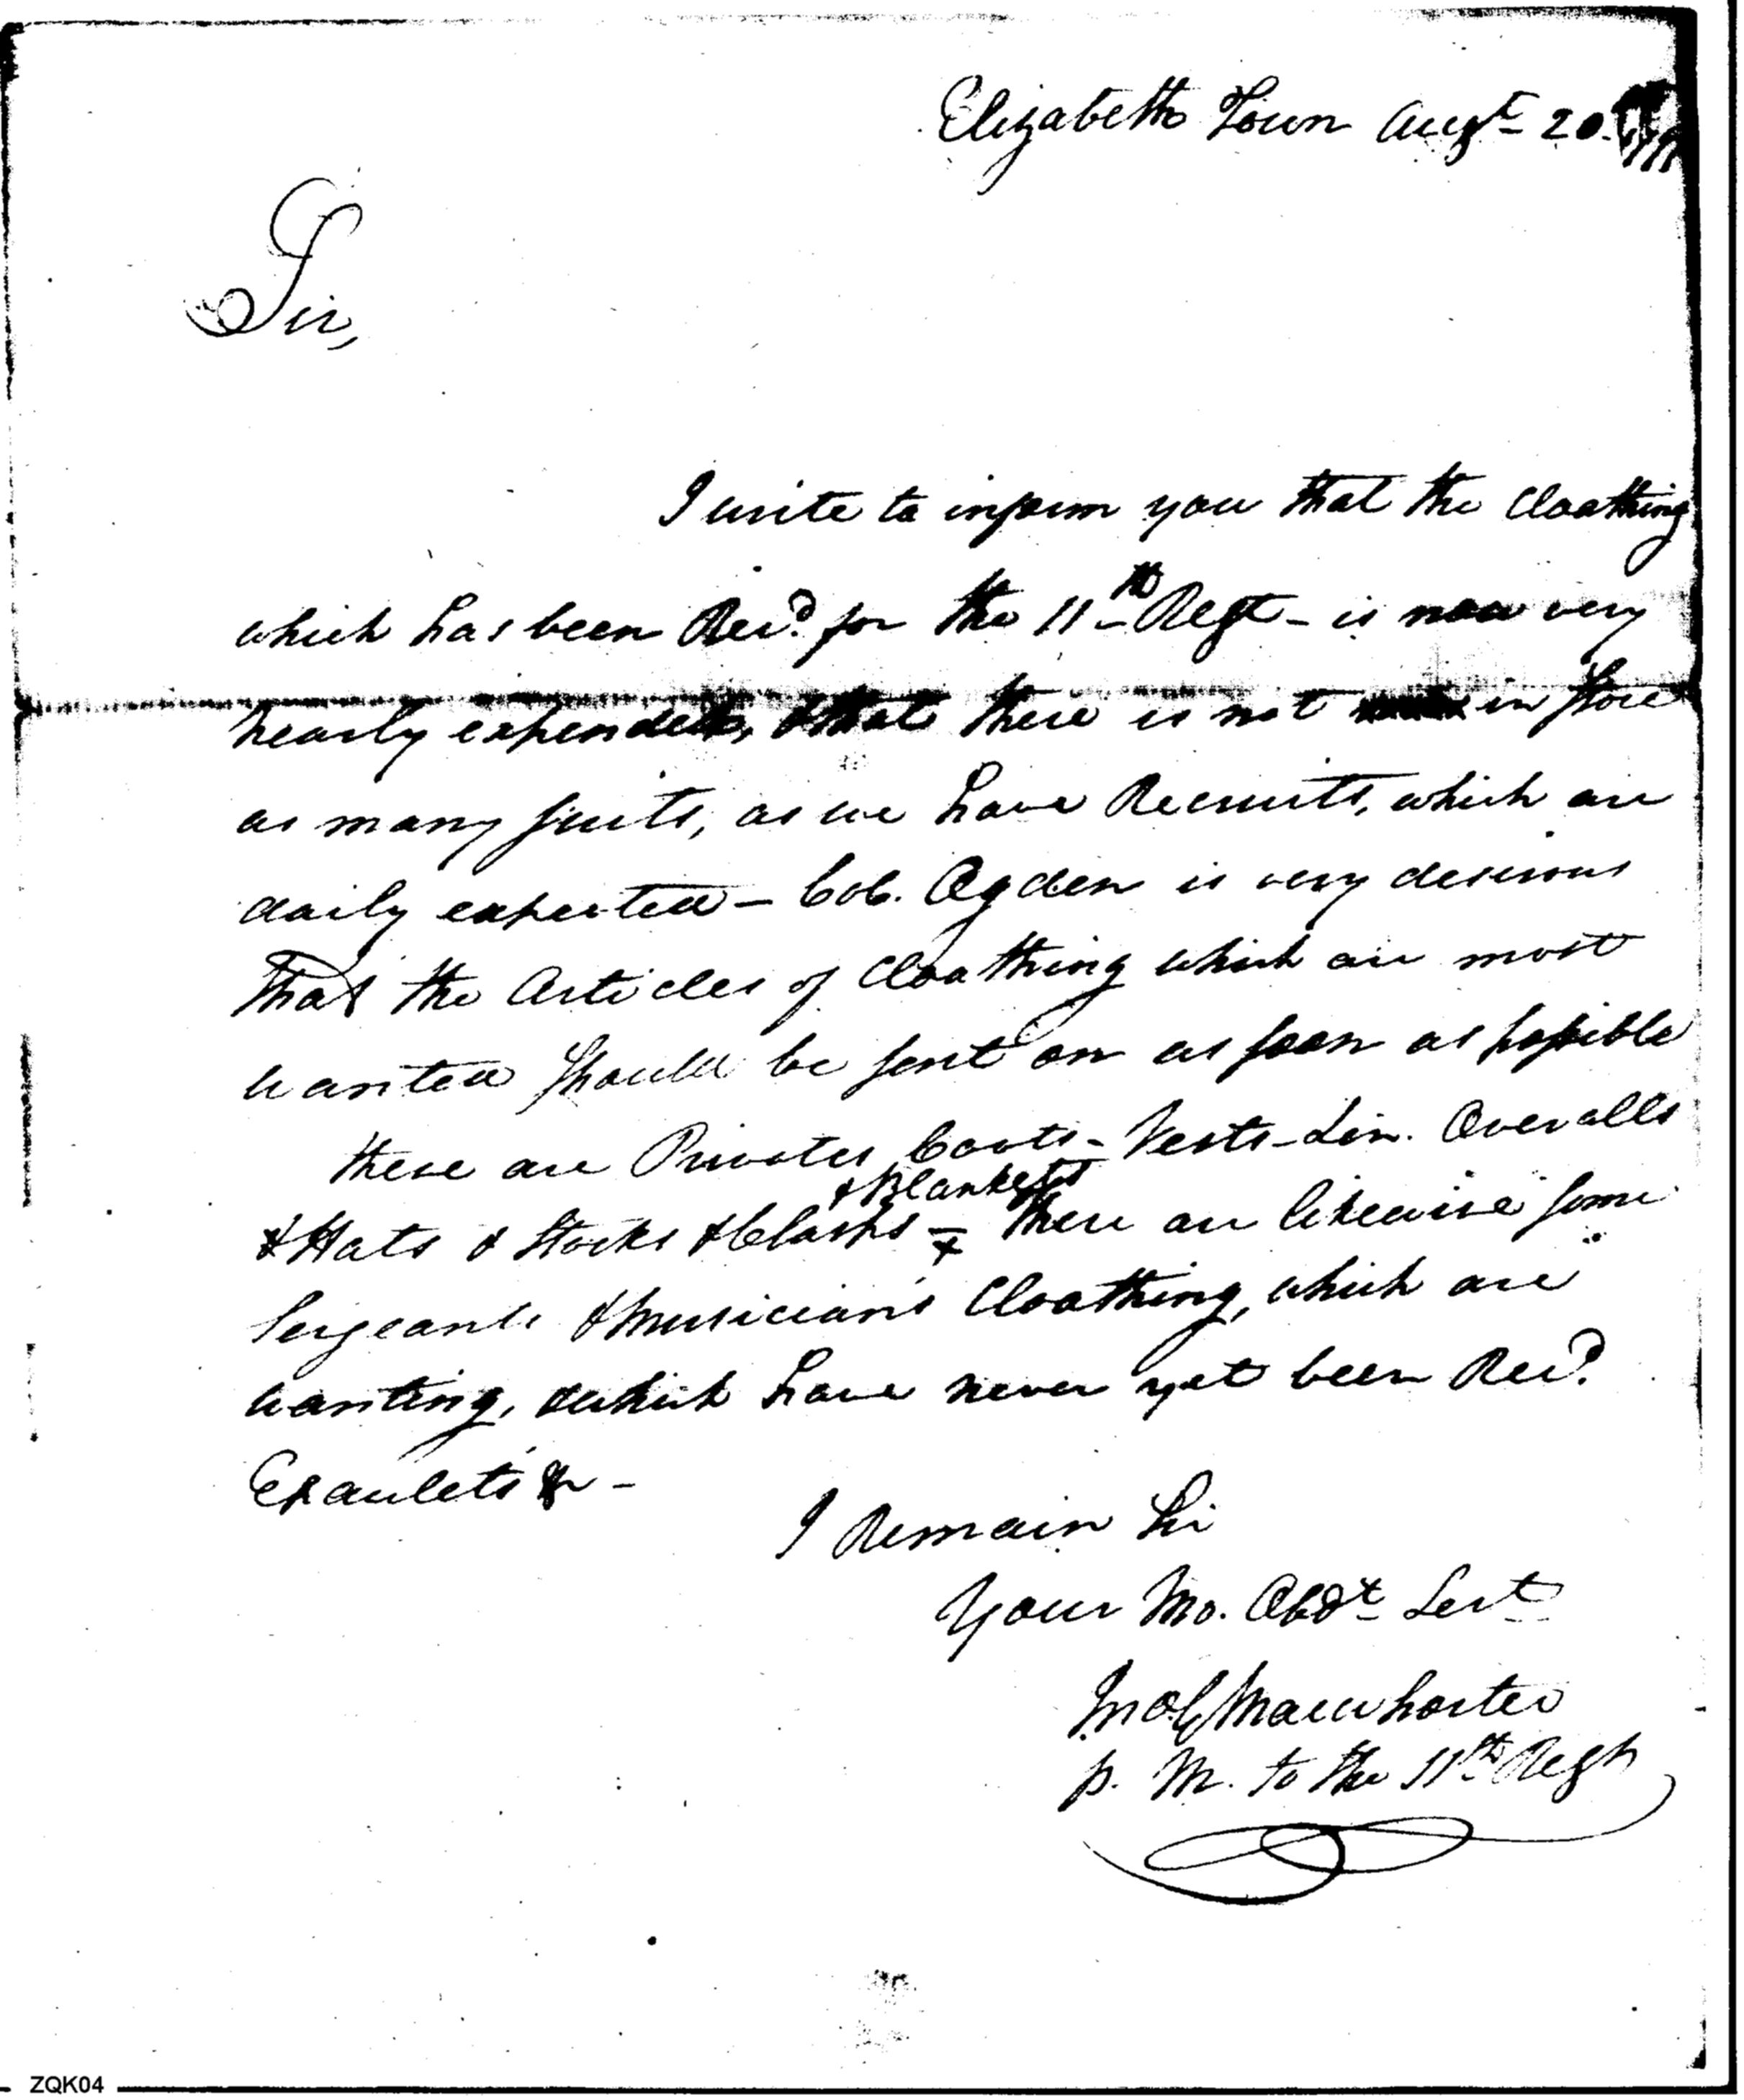 Elizabeth Town Augt 20.
Sir,
I write to inform you that the Cloathing
which has been Recd. for the 11th Regt - is now very
nearly expended, & that there is not in Store
as many suits, as we have Recruits, which are
daily expected - Col. Ogden is very desirous
that the Articles of Cloathing which are most
wanted should be sent on as soon as possible
these are Privates Coats - Vests - Lin. Overalls
& Blankets
& Hats & Stocks & Clasps - & there are likewise some
Sergeants & Musicians Cloathing, which are
wanting, & which have never yet been Recd.
Epaulets & -
I Remain Sir
Your Mo. Obdt Sert
P. M. to the 11th Regt
ZQK04